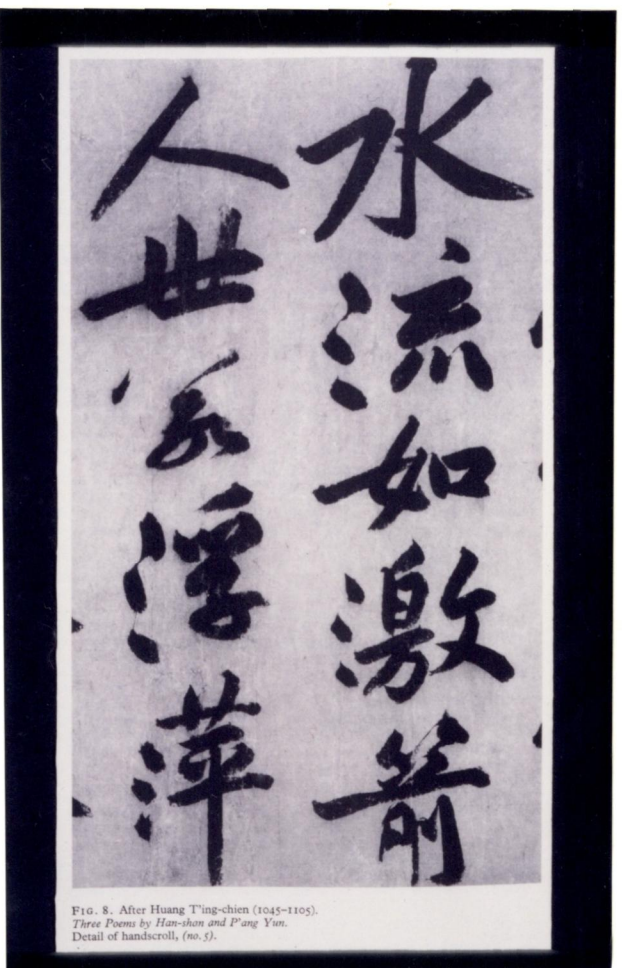 水流如激箭
人世若浮萍
FIG. 8. After Huang T'ing-chien (1045–1105).
Three Poems by Han-shan and P'ang Yun.
Detail of handscroll, (no. 5).